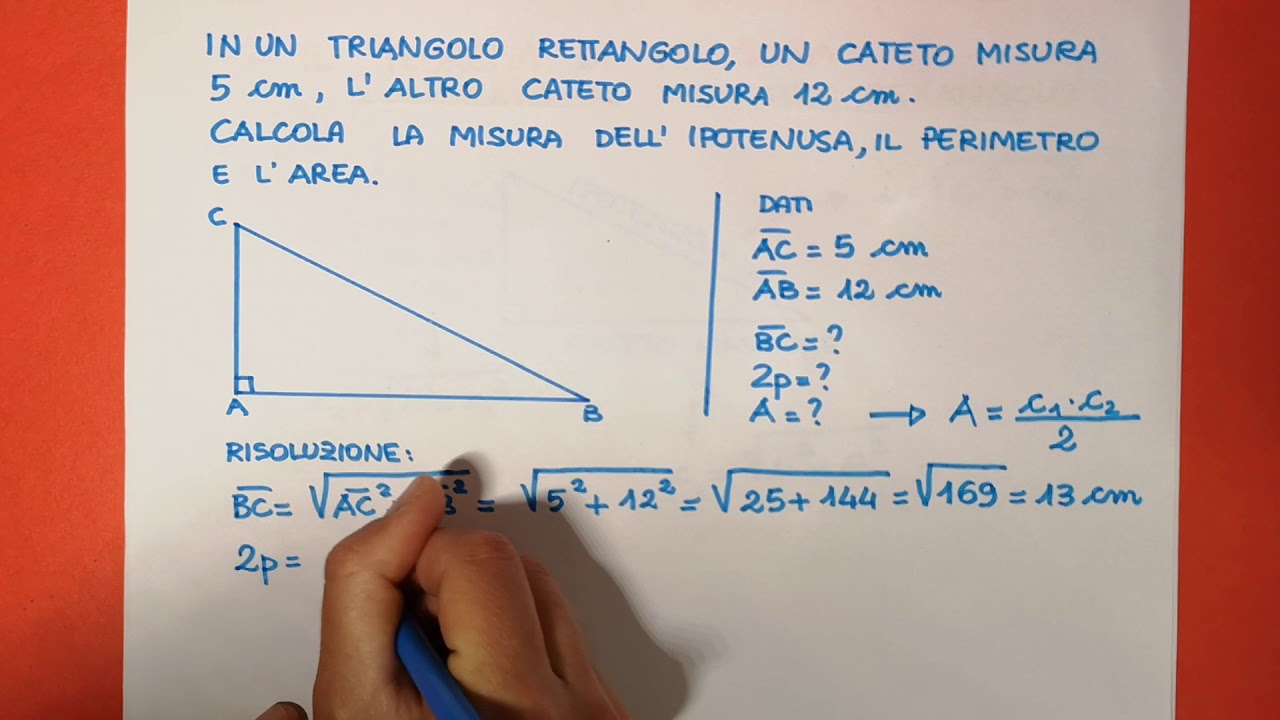 IN UN TRIANGOLO RETTANGOLO, UN CATETO MISURA
5 cm, L'ALTRO CATETO MISURA 12 cm.
CALCOLA LA MISURA DELL'IPOTENUSA, IL PERIMETRO
E L'AREA.
C
A
B
DATI
A̅C̅ = 5 cm
A̅B̅ = 12 cm
B̅C̅ = ?
2p = ?
A = ? → A = c₁·c₂/2
RISOLUZIONE:
B̅C̅ = √A̅C̅² ² = √5²+12² = √25+144 = √169 = 13 cm
2p =